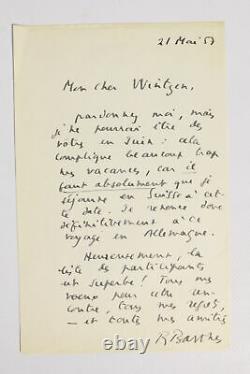 21 Mai 57
Mon cher Wintzen,
pardonnez moi, mais
je ne pourrai être des
vôtres en Juin : cela
complique beaucoup trop
mes vacances, car il
faut absolument que je
séjourne en Suisse à cet-
te date. Je renonce donc
définitivement à ce
voyage en Allemagne.
Heureusement, la
liste des participants
est superbe ! Tous mes
voeux pour cette ren-
contre, tous mes regrets,
— et toutes mes amitiés
R Barthes